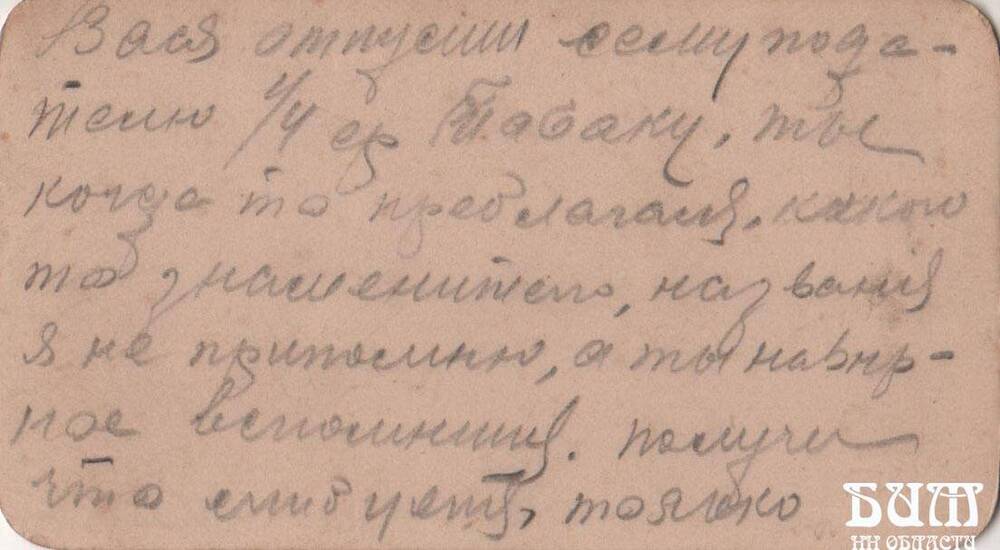 Вася отпусти сему пода-
телю 1/4 ф Табаку, ты
когда то предлагал, какого
то знаменитаго, названия
я не припомню, а ты навър-
ное вспомнишь. получи
что следует, только
БИТ
НН ОБЛАСТИ